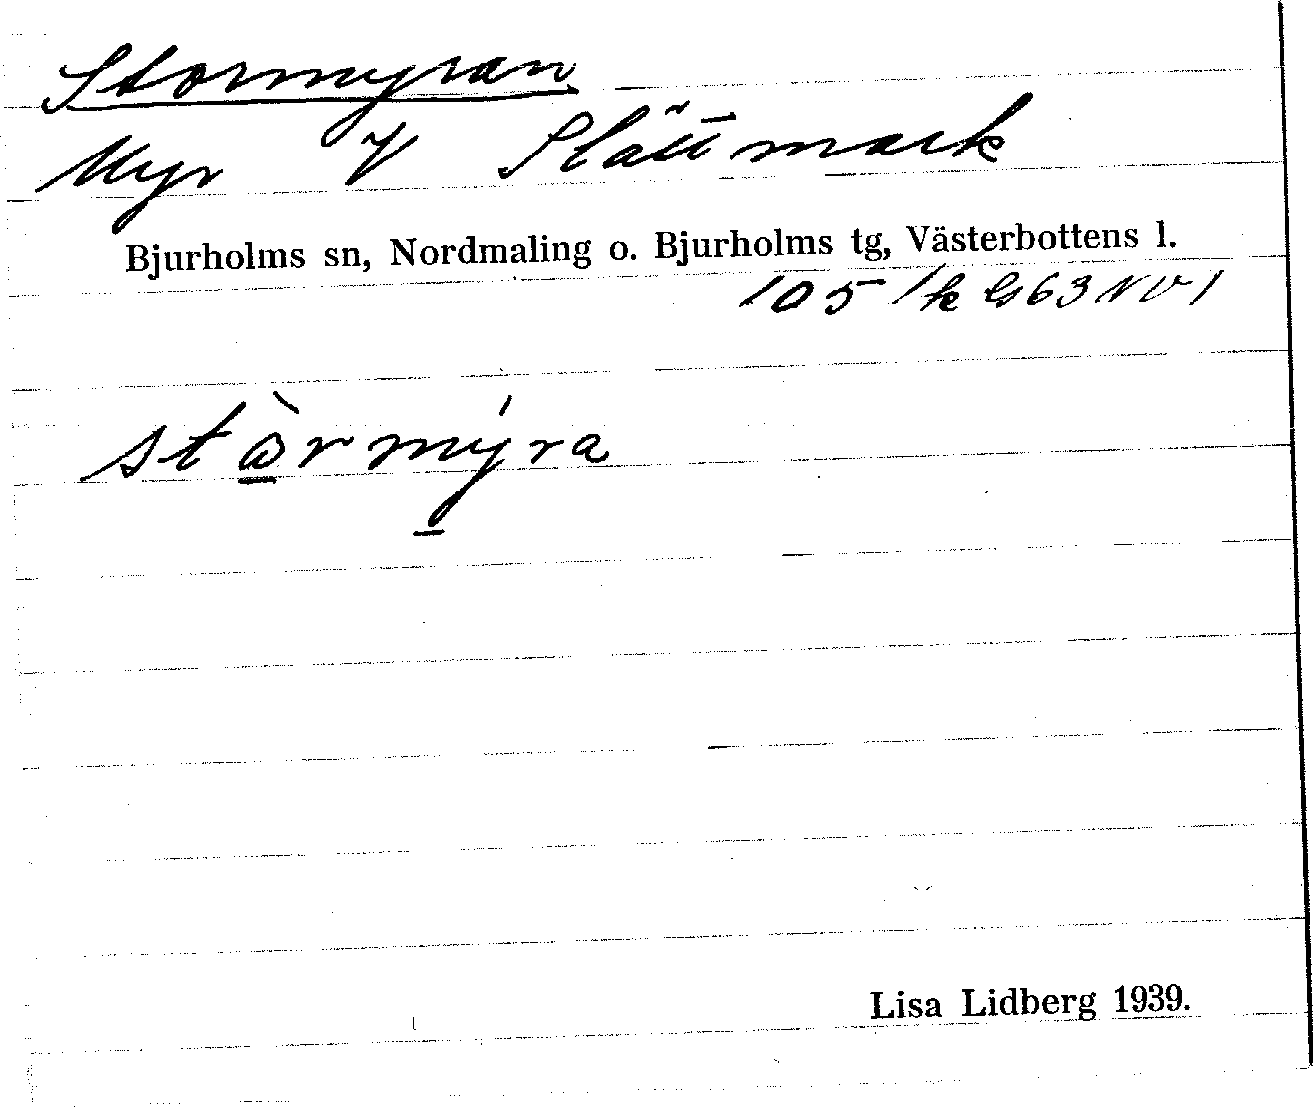 Stormyran
Myr V Slättmark
Bjurholms sn, Nordmaling o. Bjurholms tg, Västerbottens l.
105 1k G63NV1
stòrmýra
Lisa Lidberg 1939.